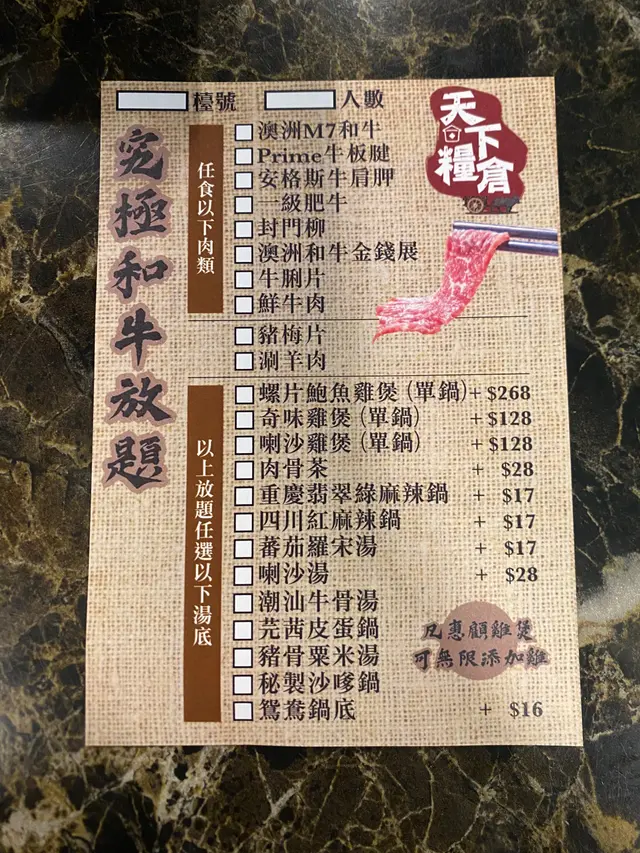 檯號 人數
天下糧倉
究極和牛放題
任食以下肉類
澳洲M7和牛
Prime牛板腱
安格斯牛肩胛
一級肥牛
封門柳
澳洲和牛金錢展
牛脷片
鮮牛肉
豬梅片
涮羊肉
以上放題任選以下湯底
螺片鮑魚雞煲（單鍋）+ $268
奇味雞煲（單鍋） + $128
喇沙雞煲（單鍋） + $128
肉骨茶 + $28
重慶翡翠綠麻辣鍋 + $17
四川紅麻辣鍋 + $17
蕃茄羅宋湯 + $17
喇沙湯 + $28
潮汕牛骨湯
芫茜皮蛋鍋
豬骨粟米湯
秘製沙嗲鍋
鴛鴦鍋底 + $16
凡惠顧雞煲
可無限添加雞